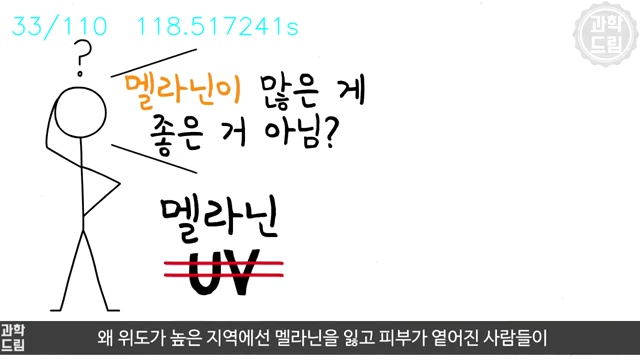 33/110 118.517241s
과학
드림
?
멜라닌이 많은 게
좋은 거 아님?
멜라닌
UV
과학
드림
왜 위도가 높은 지역에선 멜라닌을 잃고 피부가 옅어진 사람들이